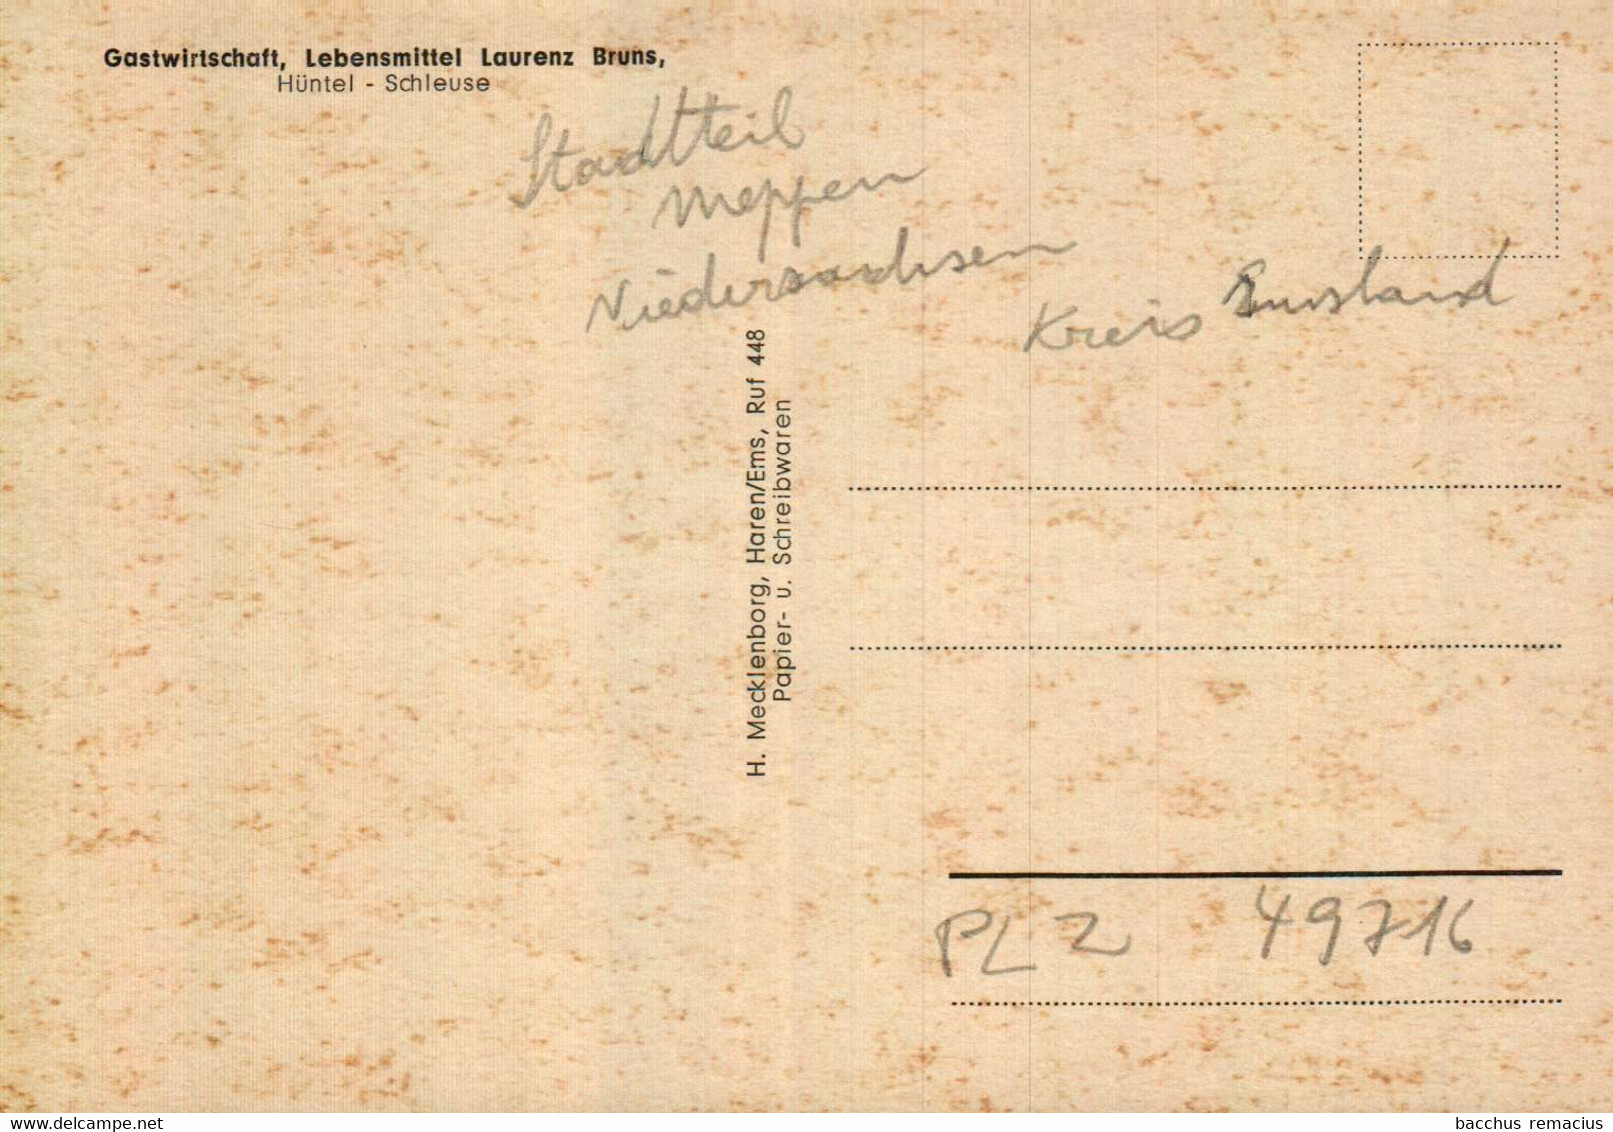 Gastwirtschaft, Lebensmittel Laurenz Bruns,
Hüntel - Schleuse
Stadtteil
Meppen
Niedersachsen
Kreis Emsland
H. Mecklenborg, Haren/Ems, Ruf 448
Papier- u. Schreibwaren
PLZ 49716
delcampe.net
bacchus remacius